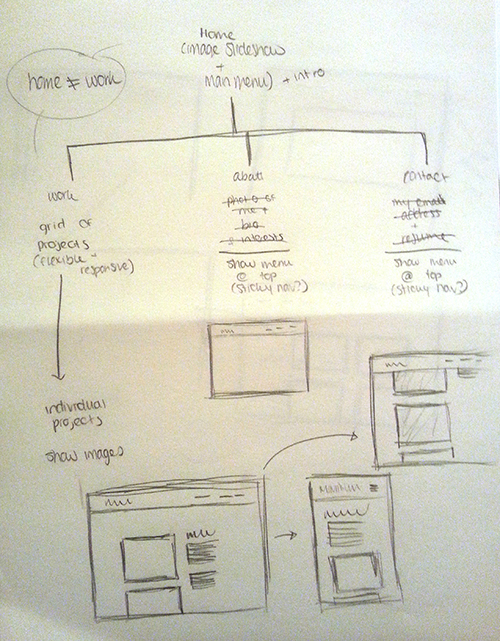 Home
(image slideshow
+
Main menu) + intro
home ≠ work
work
grid of
projects
(flexible +
responsive)
individual
projects
show images
about
photo of
me +
bio
+ interests
show menu
@ top
(sticky nav?)
contact
my email
address
+
resume
show menu
@ top
(sticky nav?)